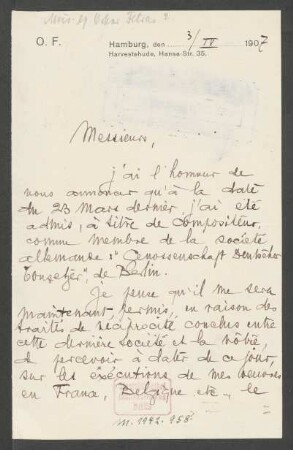 O. F.
Hamburg, den 3/IV 1907
Harvestehude, Hansa-Str. 35.
Messieurs,
j'ai l'honneur de
vous annoncer qu'à la date
du 23 Mars dernier j'ai été
admis, à titre de compositeur,
comme membre de la société
allemande: "Genossenschaft Deutscher
Tonsetzer" de Berlin.
Je pense qu'il me sera
maintenant permis, en raison des
traités de réciprocité conclus entre
cette dernière société et la vôtre,
de percevoir à dater de ce jour,
sur les exécutions de mes oeuvres
en France, Belgique etc., le
M. 1942. 958.